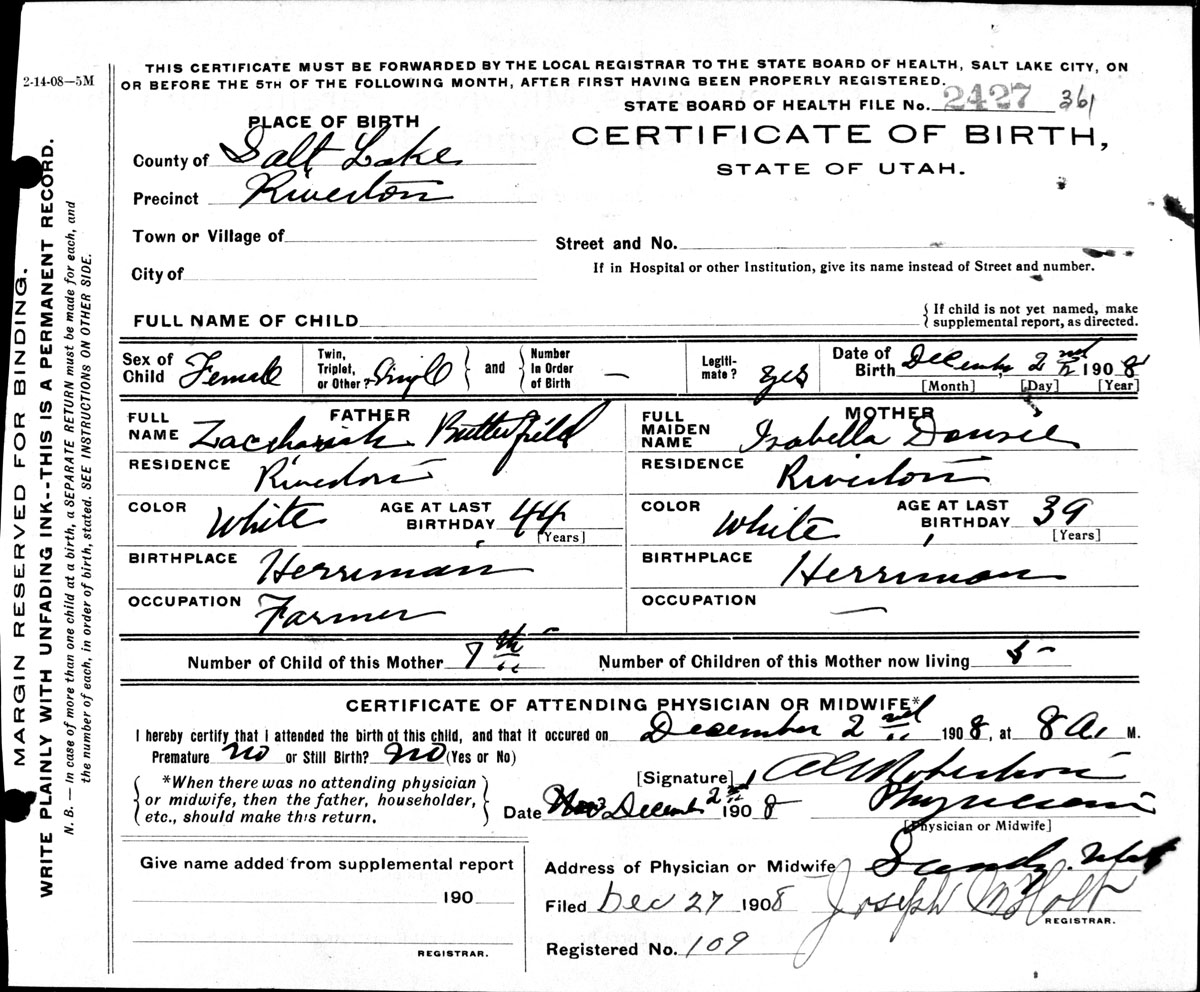 2-14-08—5M
THIS CERTIFICATE MUST BE FORWARDED BY THE LOCAL REGISTRAR TO THE STATE BOARD OF HEALTH, SALT LAKE CITY, ON
OR BEFORE THE 5TH OF THE FOLLOWING MONTH, AFTER FIRST HAVING BEEN PROPERLY REGISTERED.
STATE BOARD OF HEALTH FILE No. 2427 361
PLACE OF BIRTH
CERTIFICATE OF BIRTH,
STATE OF UTAH.
County of Salt Lake
Precinct Riverton
Town or Village of
Street and No.
City of
If in Hospital or other Institution, give its name instead of Street and number.
FULL NAME OF CHILD
{ If child is not yet named, make
supplemental report, as directed.
Sex of Child Female
Twin, Triplet, or Other Single } and { Number In Order of Birth —
Legiti-mate? yes
Date of Birth December 2nd 1908
[Month] [Day] [Year]
FATHER
FULL NAME Zacchariah Butterfield
RESIDENCE Riverton
COLOR White AGE AT LAST BIRTHDAY 44
[Years]
BIRTHPLACE Herriman
OCCUPATION Farmer
MOTHER
FULL MAIDEN NAME Isabella Dansie
RESIDENCE Riverton
COLOR White AGE AT LAST BIRTHDAY 39
[Years]
BIRTHPLACE Herriman
OCCUPATION —
Number of Child of this Mother 7th Number of Children of this Mother now living 5
CERTIFICATE OF ATTENDING PHYSICIAN OR MIDWIFE*
I hereby certify that I attended the birth of this child, and that it occured on December 2nd 1908, at 8 A. M.
Premature no or Still Birth? no (Yes or No)
{ *When there was no attending physician
or midwife, then the father, householder,
etc., should make this return. }
[Signature] Robertson
Date December 2nd 1908 Physician
[Physician or Midwife]
Give name added from supplemental report
190
REGISTRAR.
Address of Physician or Midwife Sandy. Utah
Filed Dec 27 1908 Joseph M Holt
REGISTRAR.
Registered No. 109
MARGIN RESERVED FOR BINDING.
WRITE PLAINLY WITH UNFADING INK--THIS IS A PERMANENT RECORD.
N. B. — In case of more than one child at a birth, a SEPARATE RETURN must be made for each, and
the number of each, in order of birth, stated. SEE INSTRUCTIONS ON OTHER SIDE.